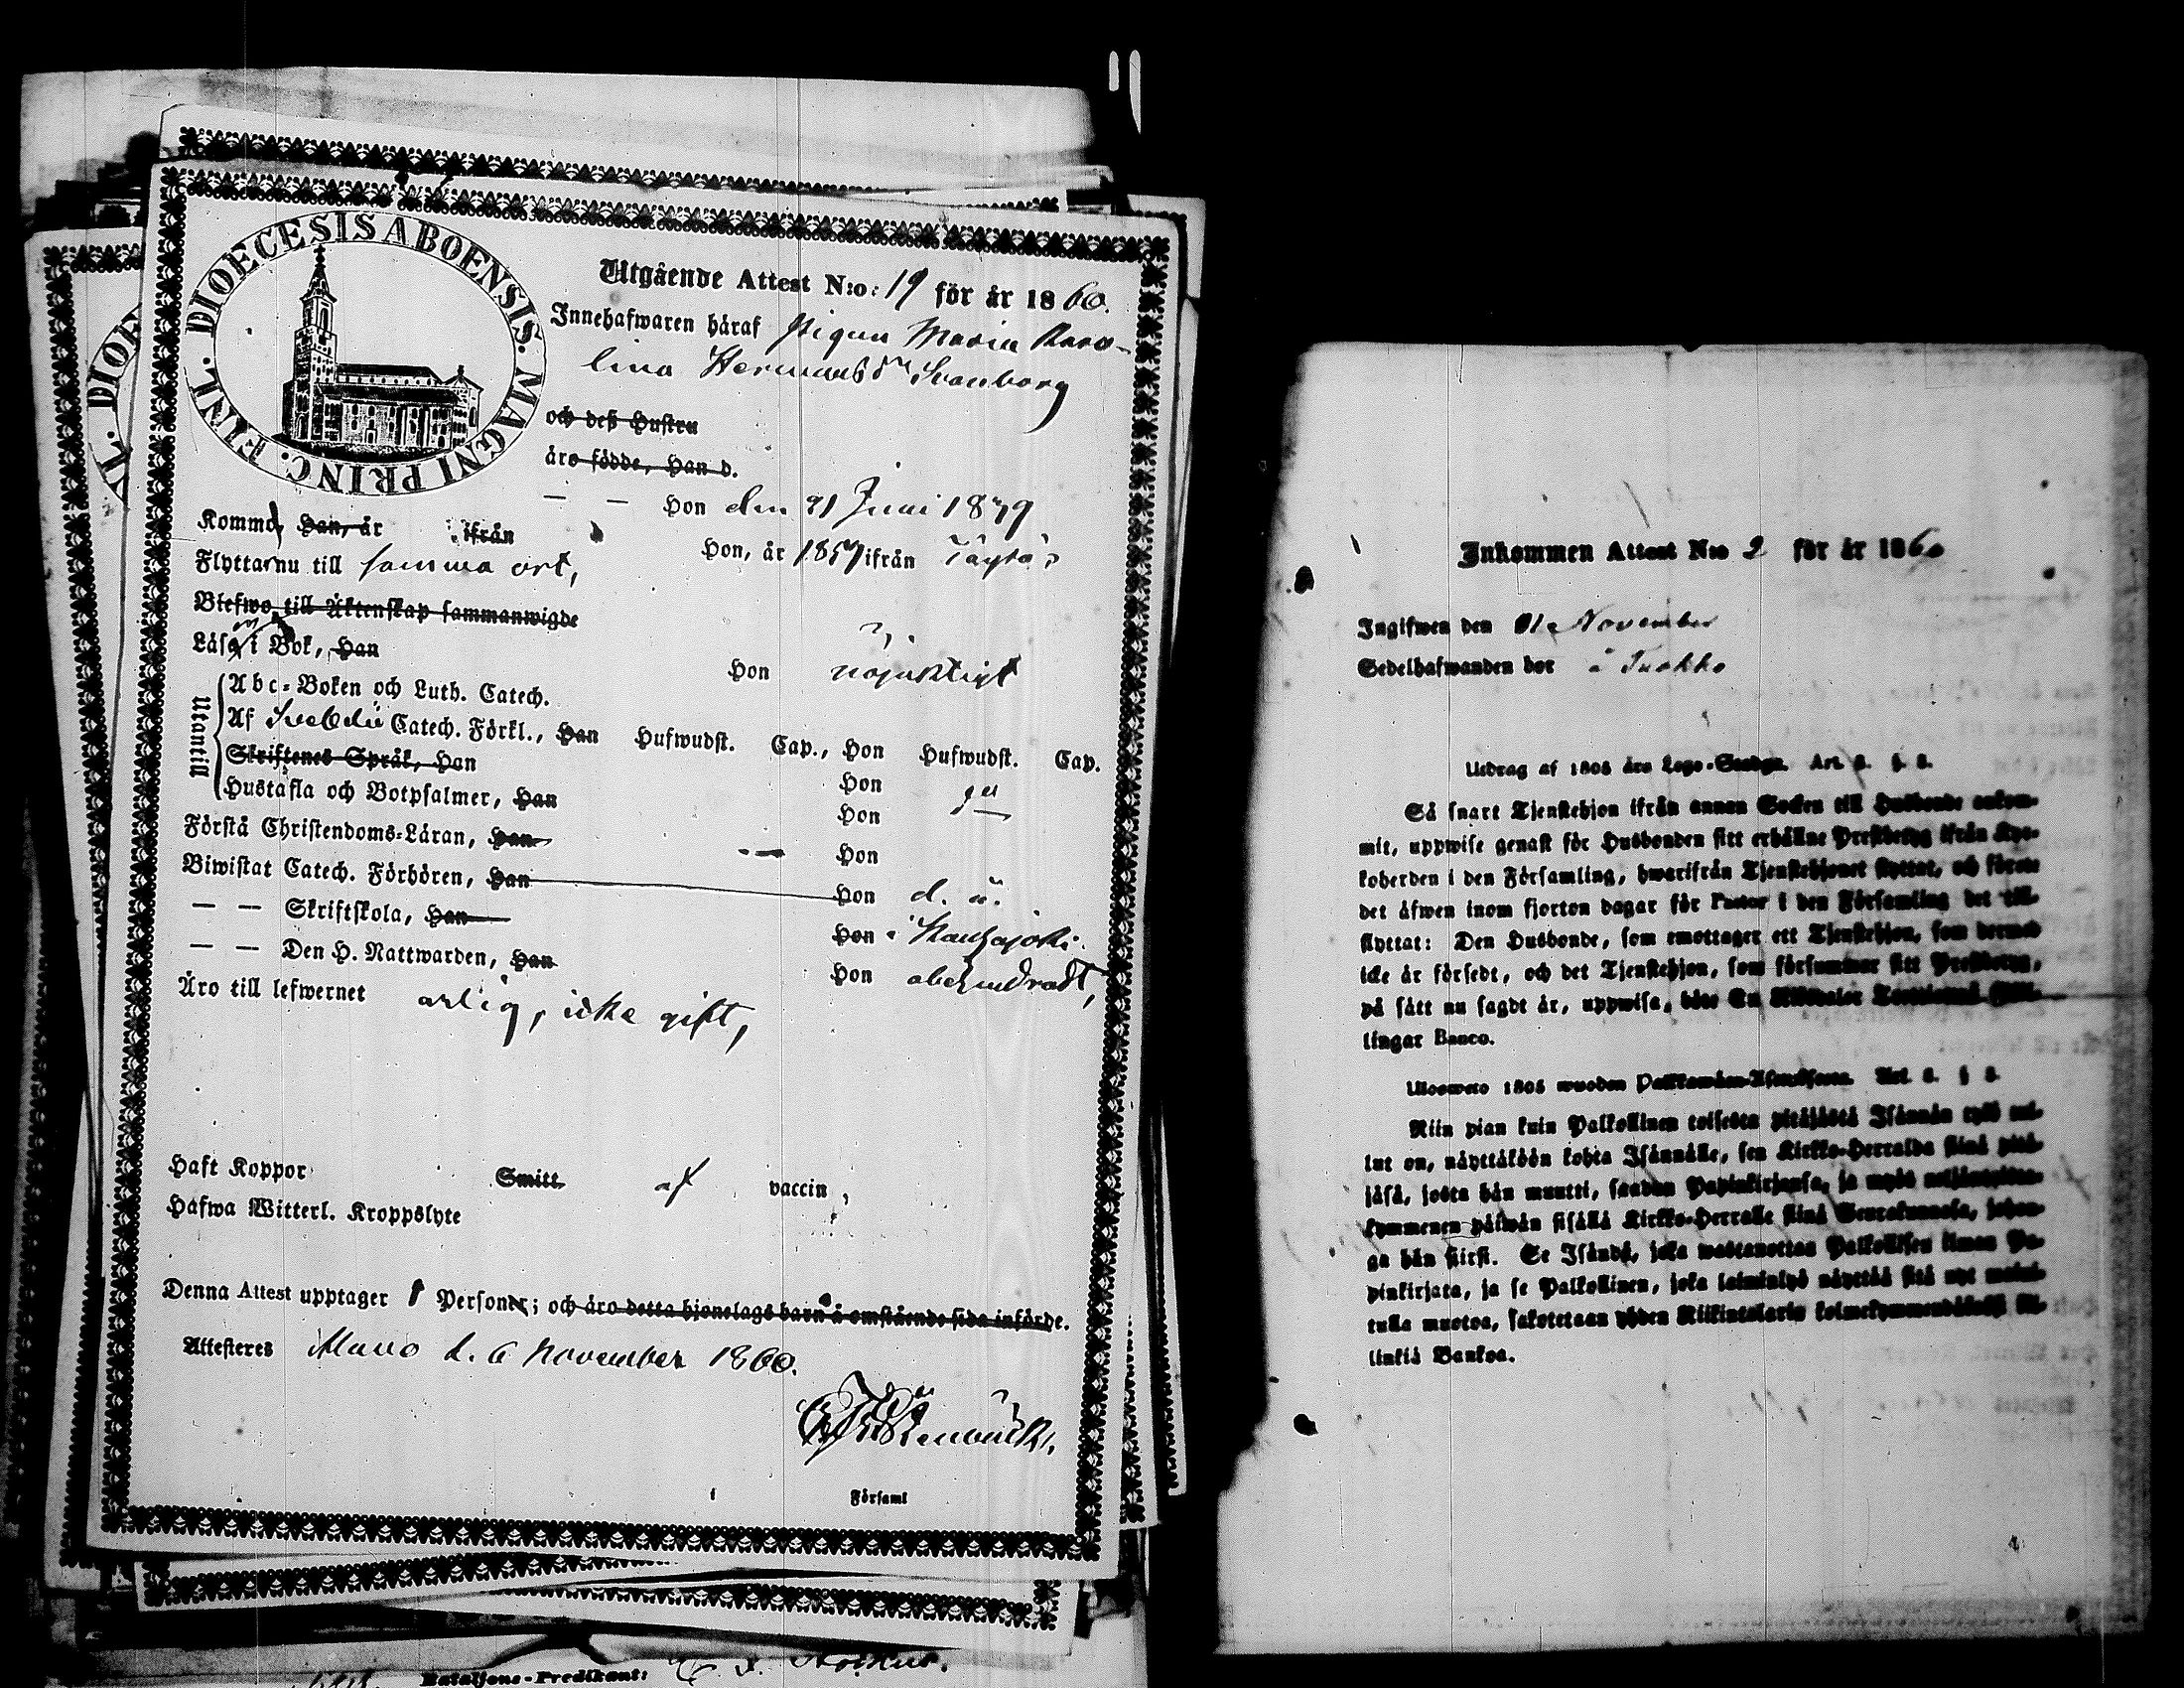 DIOECESIS ABOENSIS. MAGNI PRINC. FINL.
Utgående Attest N:o: 19 för år 1860.
Innehafwaren häraf Pigan Maria Karo-
lina Hermansdr Svanborg
och deß Hustru
äro födde, Han d.
— — Hon den 21 Juni 1839
Komma, Han, år ifrån
Hon, år 1857 ifrån
Flyttar nu till samma ort,
Blefwo till Äktenskap sammanwigde
Läsa i Bok, Han
Hon nöjaktigt
Utantill
Abc-Boken och Luth. Catech.
Af Svebelii Catech. Förkl., Han Hufwudst. Cap., Hon Hufwudst. Cap.
Skriftenes Språk, Han Hon
Hustafla och Botpsalmer, Han Hon
Förstå Christendoms-Läran, Han Hon
Biwistat Catech. Förhören, Han Hon d. ä.
— — Skriftskola, Han Hon i Kauhajoki.
— — Den H. Nattwarden, Han Hon obehindradt,
Äro till lefwernet ärlig, icke gift,
Haft Koppor Smitt af vaccin,
Hafwa Witterl. Kroppslyte
Denna Attest upptager 1 Personer; och äro detta hjonelags barn å omstående sida införde.
Attesteres d. 6 November 1860.
i Församl
Bataljons-Predikant:
Inkommen Attest N:o 2 för år 1860
Ingifwen den November
Sedelhafwanden bor å
Utdrag af 1805 års Lego-Stadga. Art. 3. §. 8.
Så snart Tjenstehjon ifrån annan Socken till Husbonde ankom-
mit, uppwise genast för Husbonden sitt erhållne Prestbetyg ifrån Kyr-
koherden i den Församling, hwarifrån Tjenstehjonet flyttat, och förete
det äfwen inom fjorton dagar för Pastor i den Församling det till-
flyttat: Den Husbonde, som emottager ett Tjenstehjon, som dermed
icke är försedt, och det Tjenstehjon, som försummar sitt Prestbetyg,
på sätt nu sagdt är, uppwisa, böte En Riksdaler Trettiotvå Skil-
lingar Banco.
Ulosweto 1805 wuoden Palkkawäen-Asetuksesta. Art. §
Niin pian kuin Palkollinen toisesta pitäjästä Isännän työö tul-
lut on, näyttäköön kohta Isännälle, sen Kirkko-Herralda siinä pitä-
jäsä, josta hän muutti, saadun Papinkirjansa, ja myös neljäntoista-
kymmenen päiwän sisällä Kirkko-Herralle siinä Seurakunnasa, johon-
ga hän siirsi. Se Isändä, joka wastaanottaa Palkollisen ilman Pa-
pinkirjata, ja se Palkollinen, joka laiminlyö näyttää sitä nyt maini-
tulla muotoa, sakotetaan yhden Riikintalarin kolmekymmendäkaksi kil-
linkiä Bankoa.